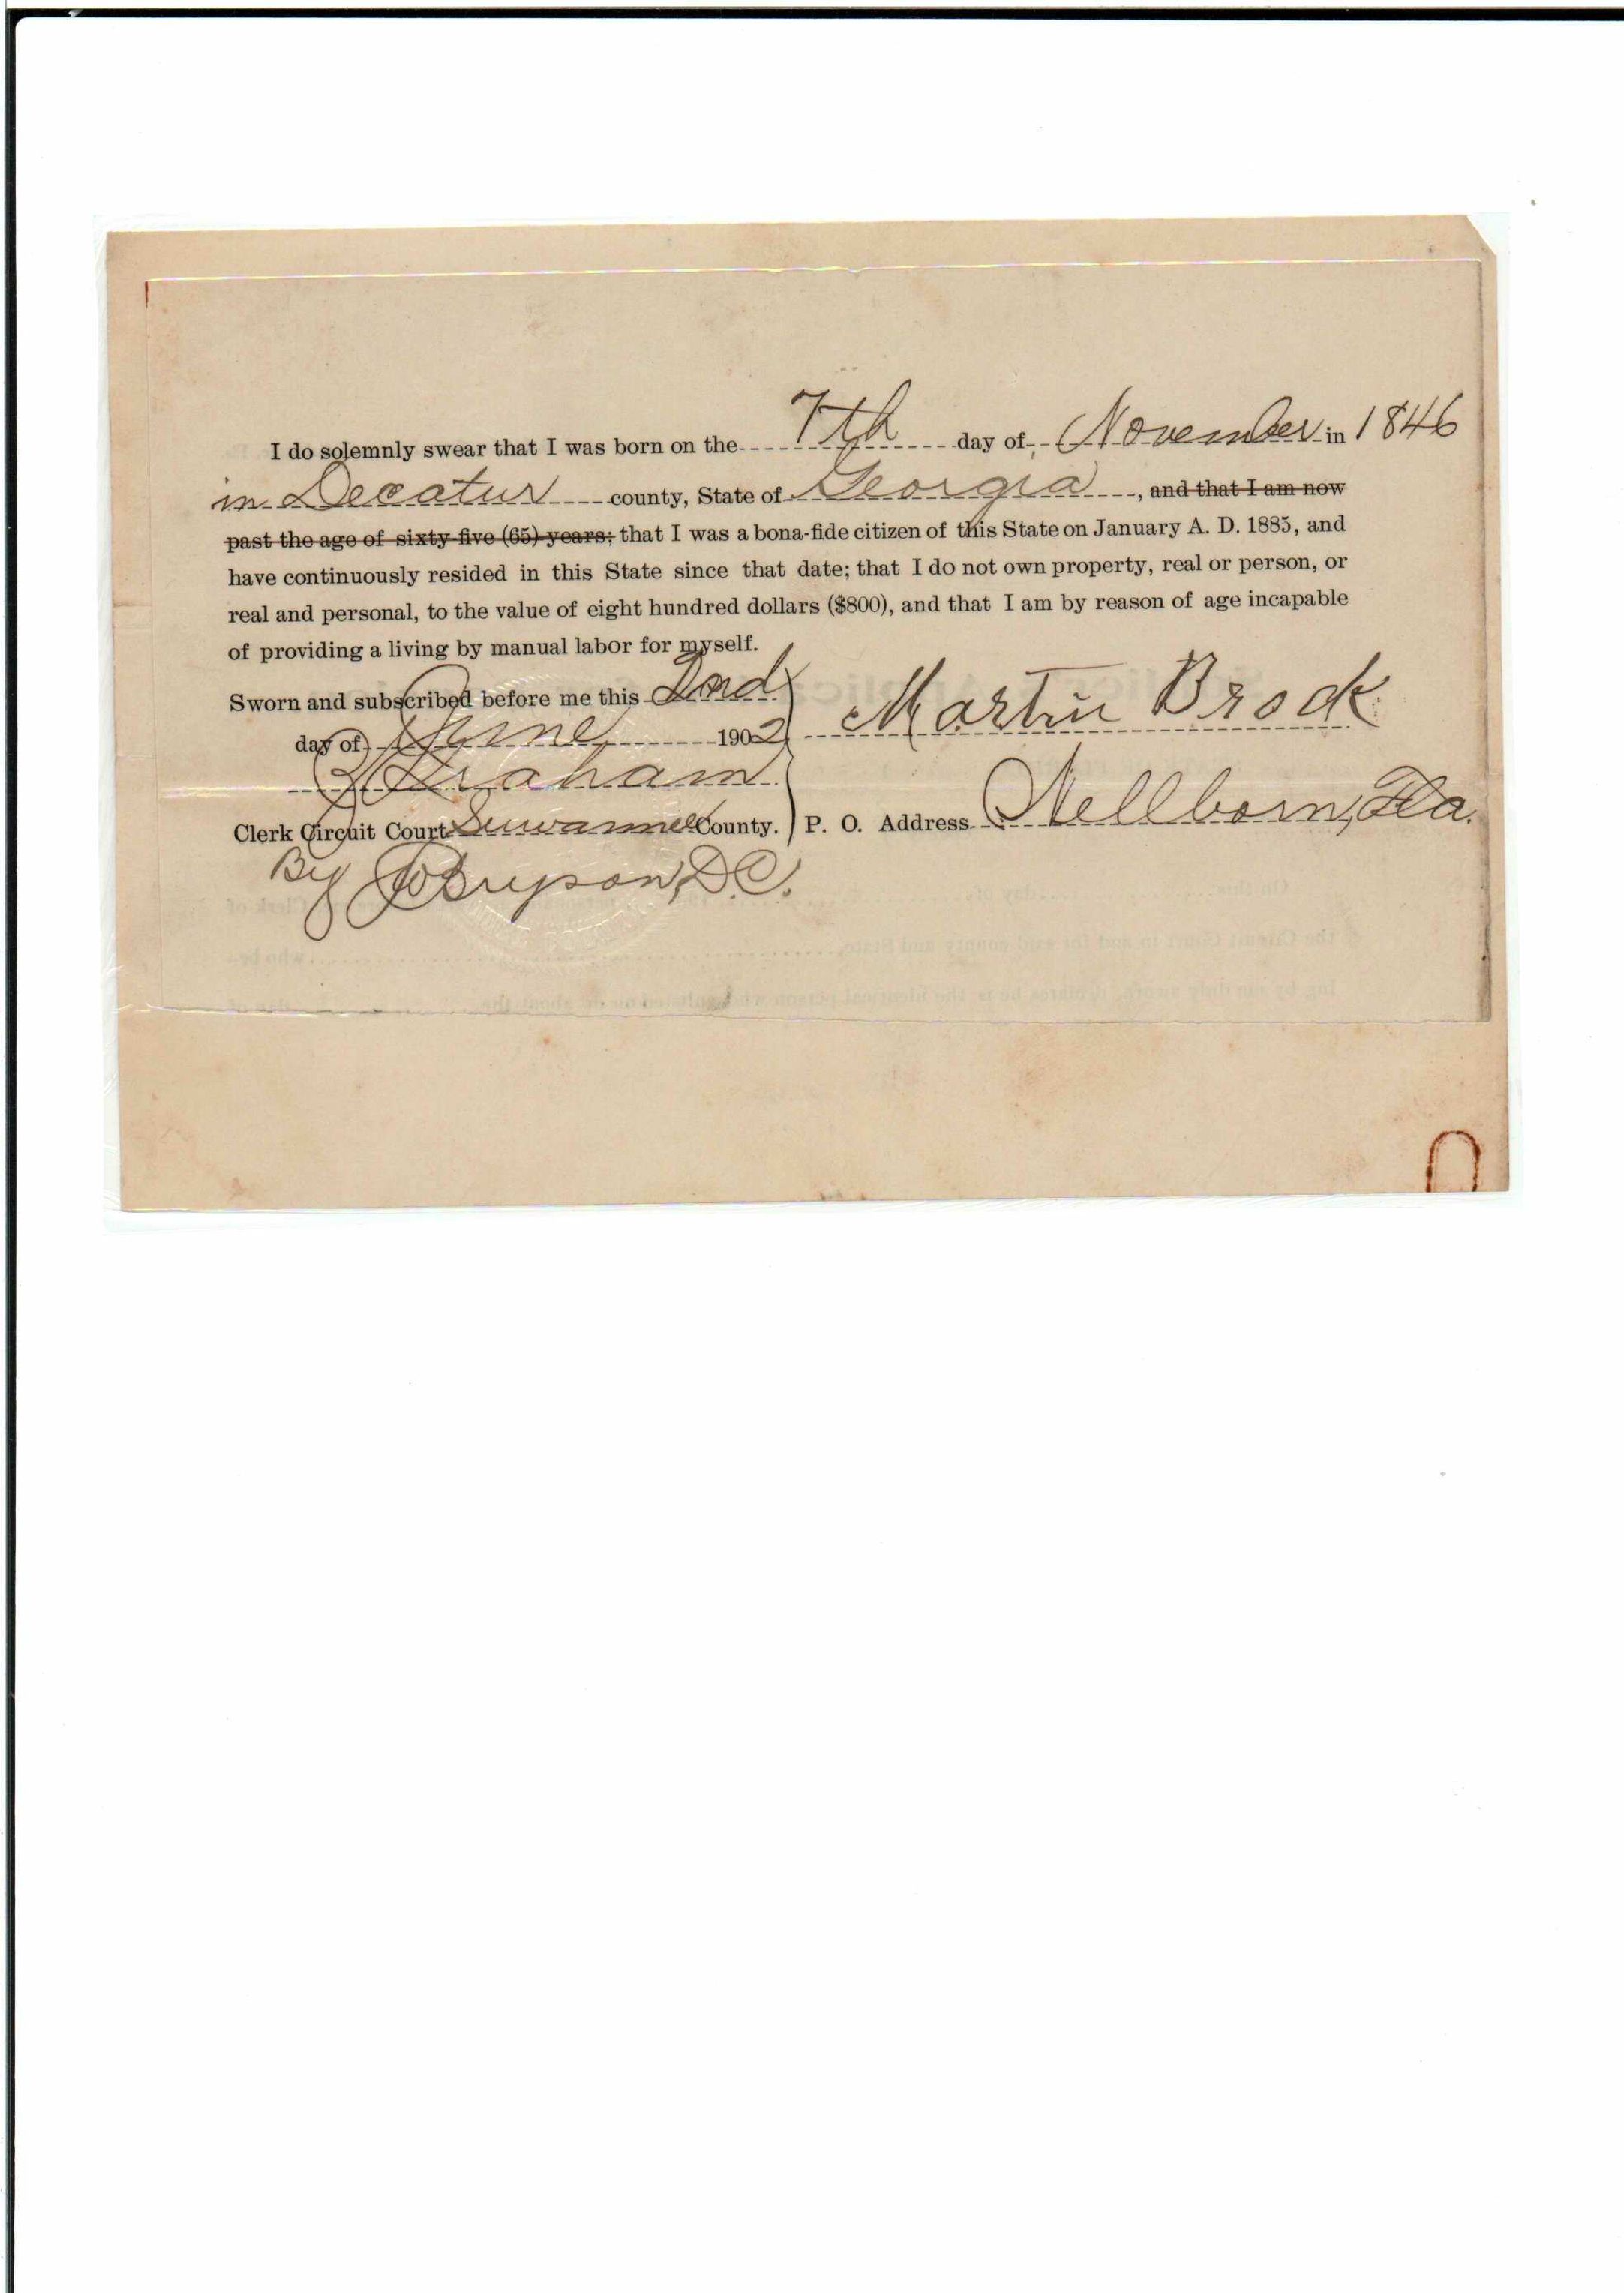 I do solemnly swear that I was born on the 7th day of November in 1846
in Decatur county, State of Georgia, and that I am now
past the age of sixty-five (65) years; that I was a bona-fide citizen of this State on January A. D. 1885, and
have continuously resided in this State since that date; that I do not own property, real or person, or
real and personal, to the value of eight hundred dollars ($800), and that I am by reason of age incapable
of providing a living by manual labor for myself.
Sworn and subscribed before me this 2nd
day of June 1902 Martin Brock
Graham
Clerk Circuit Court Suwannee County. P. O. Address Wellborn, Fla.
By Bryson, D.C.